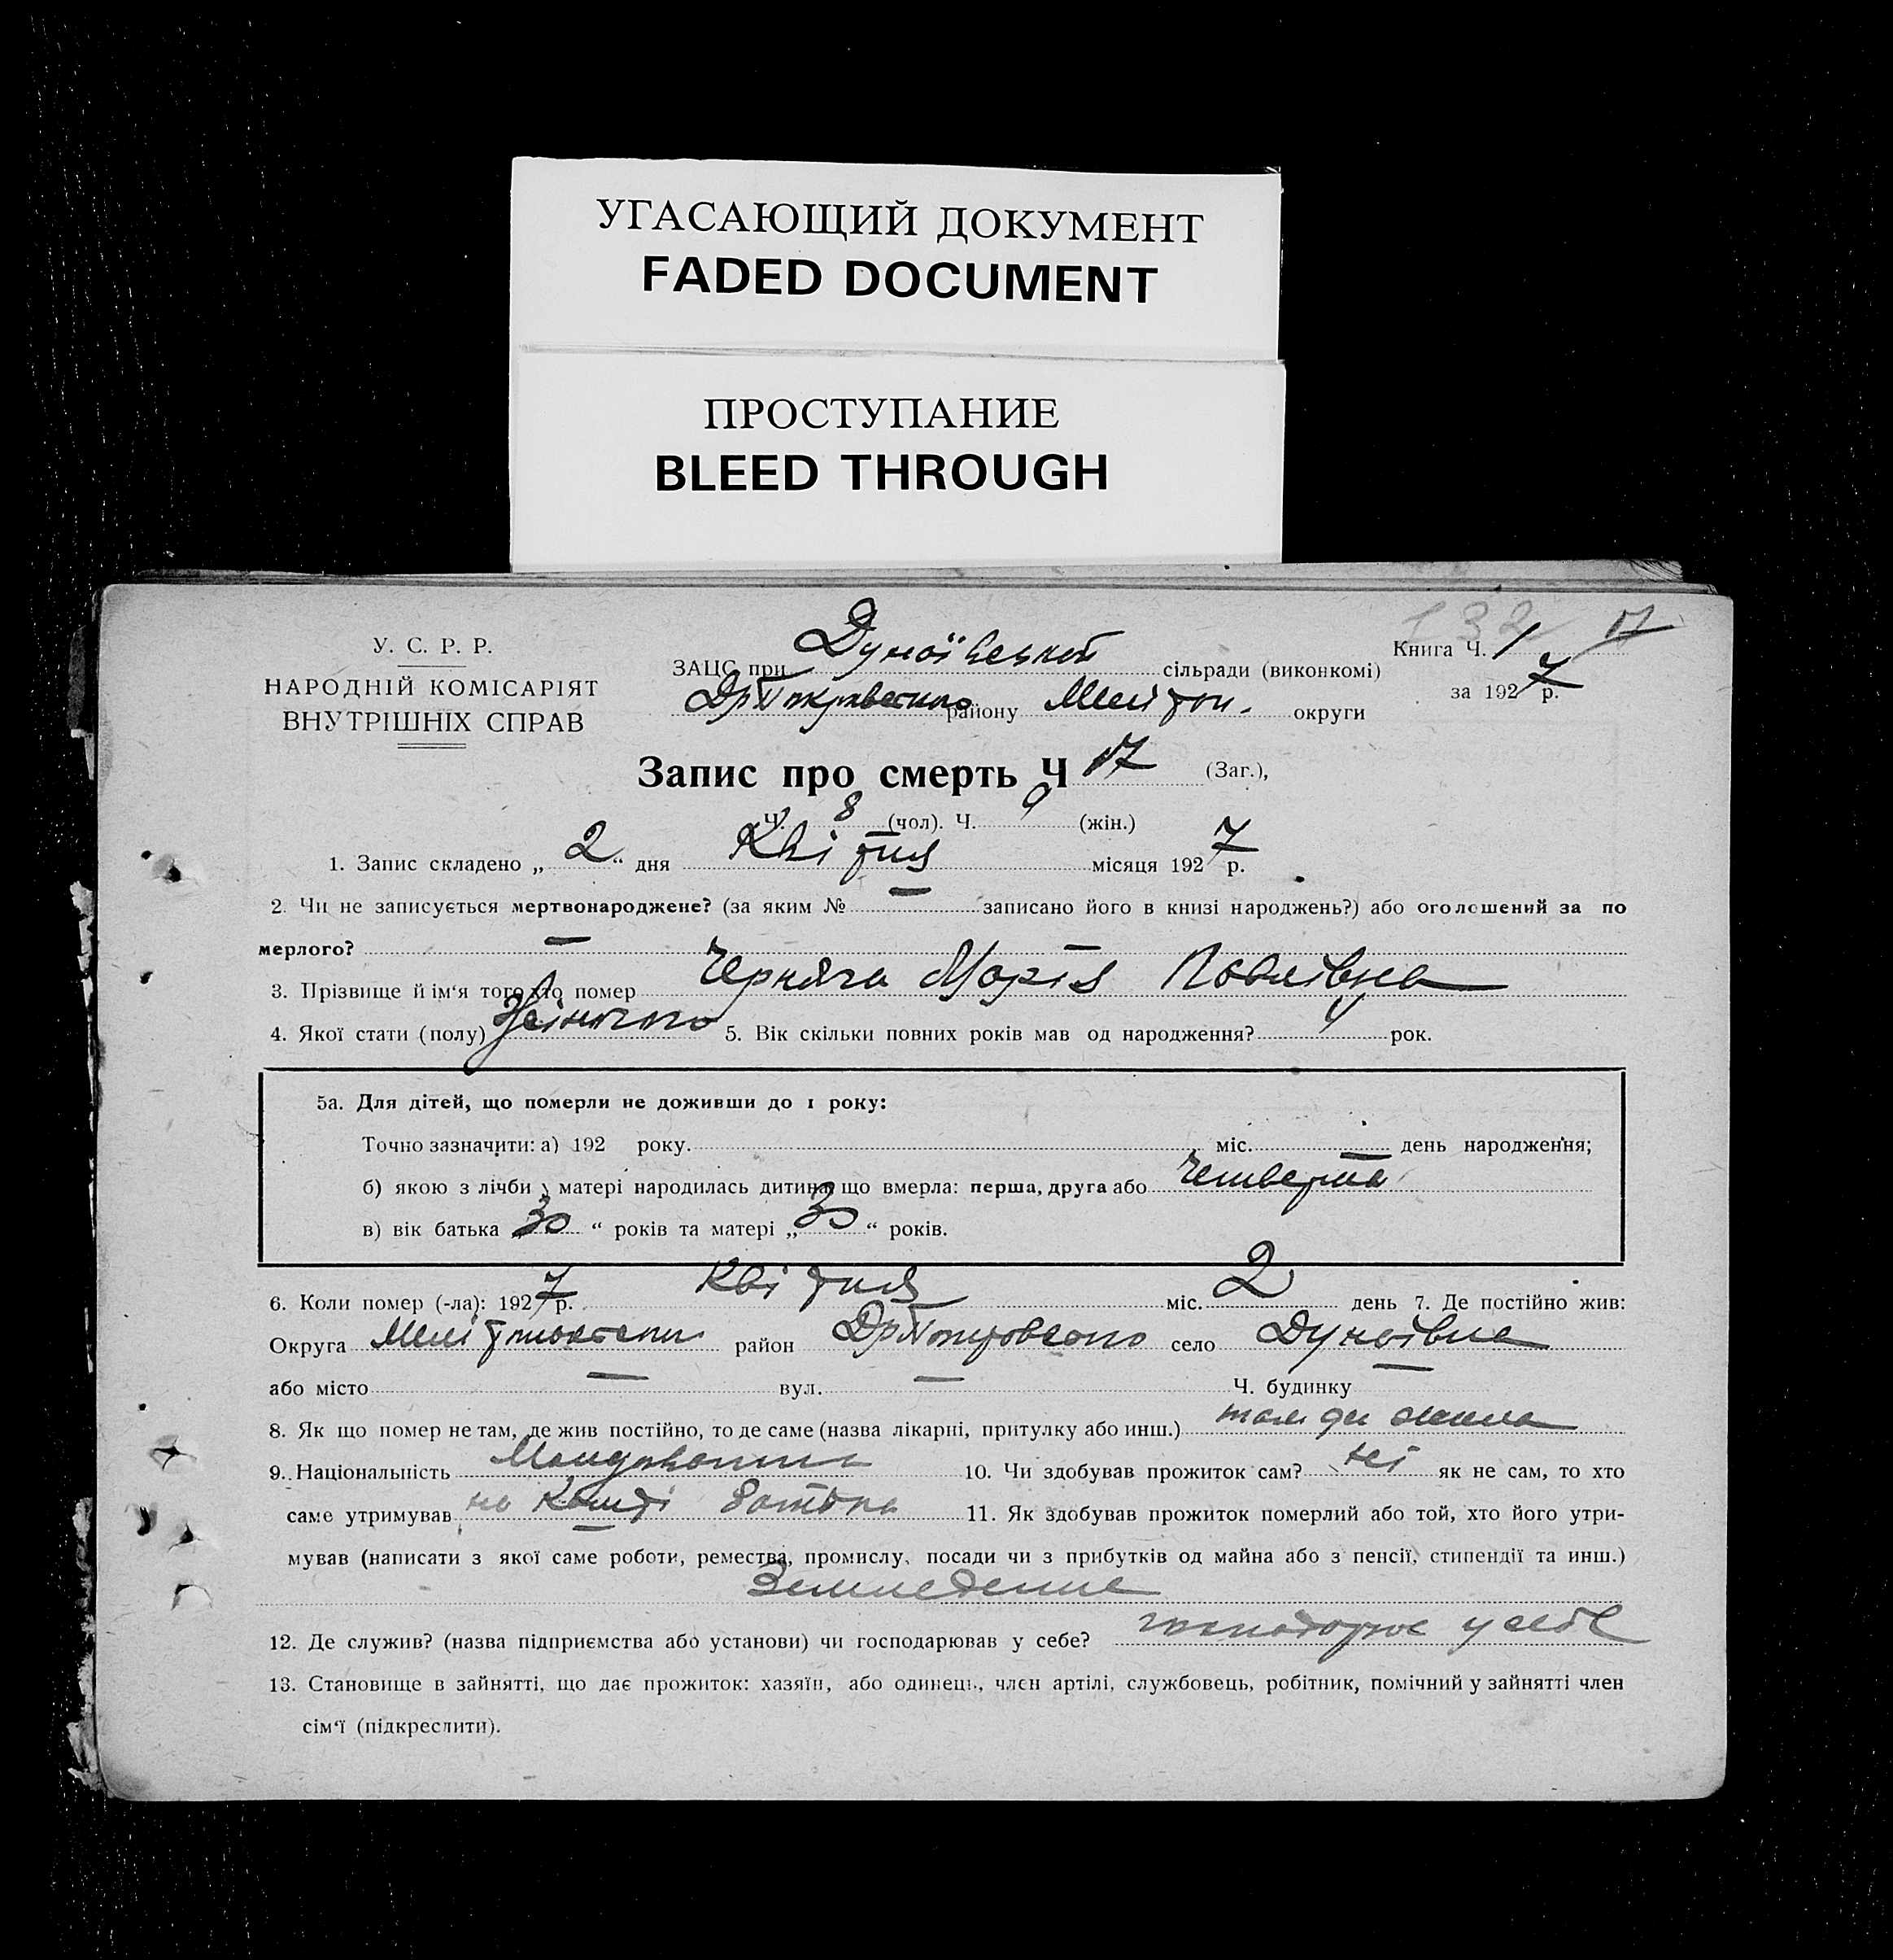 УГАСАЮЩИЙ ДОКУМЕНТ
FADED DOCUMENT
ПРОСТУПАНИЕ
BLEED THROUGH
132 17
У. С. Р. Р.
НАРОДНІЙ КОМІСАРІЯТ
ВНУТРІШНІХ СПРАВ
ЗАЦС при Дунаївській сільради (виконкомі)
района району Мелітоп. округи
Книга Ч. 1
за 1927 р.
Запис про смерть Ч 17 (Заг.),
Ч. 8 (чол). Ч. 9 (жін.)
1. Запис складено „ 2 “ дня Квітня місяця 1927 р.
2. Чи не записується мертвонароджене? (за яким № — записано його в книзі народжень?) або оголошений за по
мерлого? — —
3. Прізвище й ім‘я того хто помер Черняга Марія Павлівна
4. Якої стати (полу) Жіночого 5. Вік скільки повних років мав од народження? 4 рок.
5а. Для дітей, що померли не доживши до 1 року:
Точно зазначити: а) 192 року. міс. — день народження;
б) якою з лічби у матері народилась дитина що вмерла: перша, друга або четверта
в) вік батька „ 30 “ років та матері „ 30 “ років.
6. Коли помер (-ла): 1927 р. Квітня міс. 2 день 7. Де постійно жив:
Округа район село Дунаївка
або місто — вул. — Ч. будинку —
8. Як що помер не там, де жив постійно, то де саме (назва лікарні, притулку або инш.) там де жила
9. Національність 10. Чи здобував прожиток сам? ні як не сам, то хто
саме утримував на кошті батька 11. Як здобував прожиток померлий або той, хто його утри-
мував (написати з якої саме роботи, ремества, промислу, посади чи з прибутків од майна або з пенсії, стипендії та инш.)
Земледелие
12. Де служив? (назва підприємства або установи) чи господарював у себе? господарює у себе
13. Становище в зайнятті, що дає прожиток: хазяїн, або одинець, член артілі, службовець, робітник, помічний у зайнятті член
сім‘ї (підкреслити).